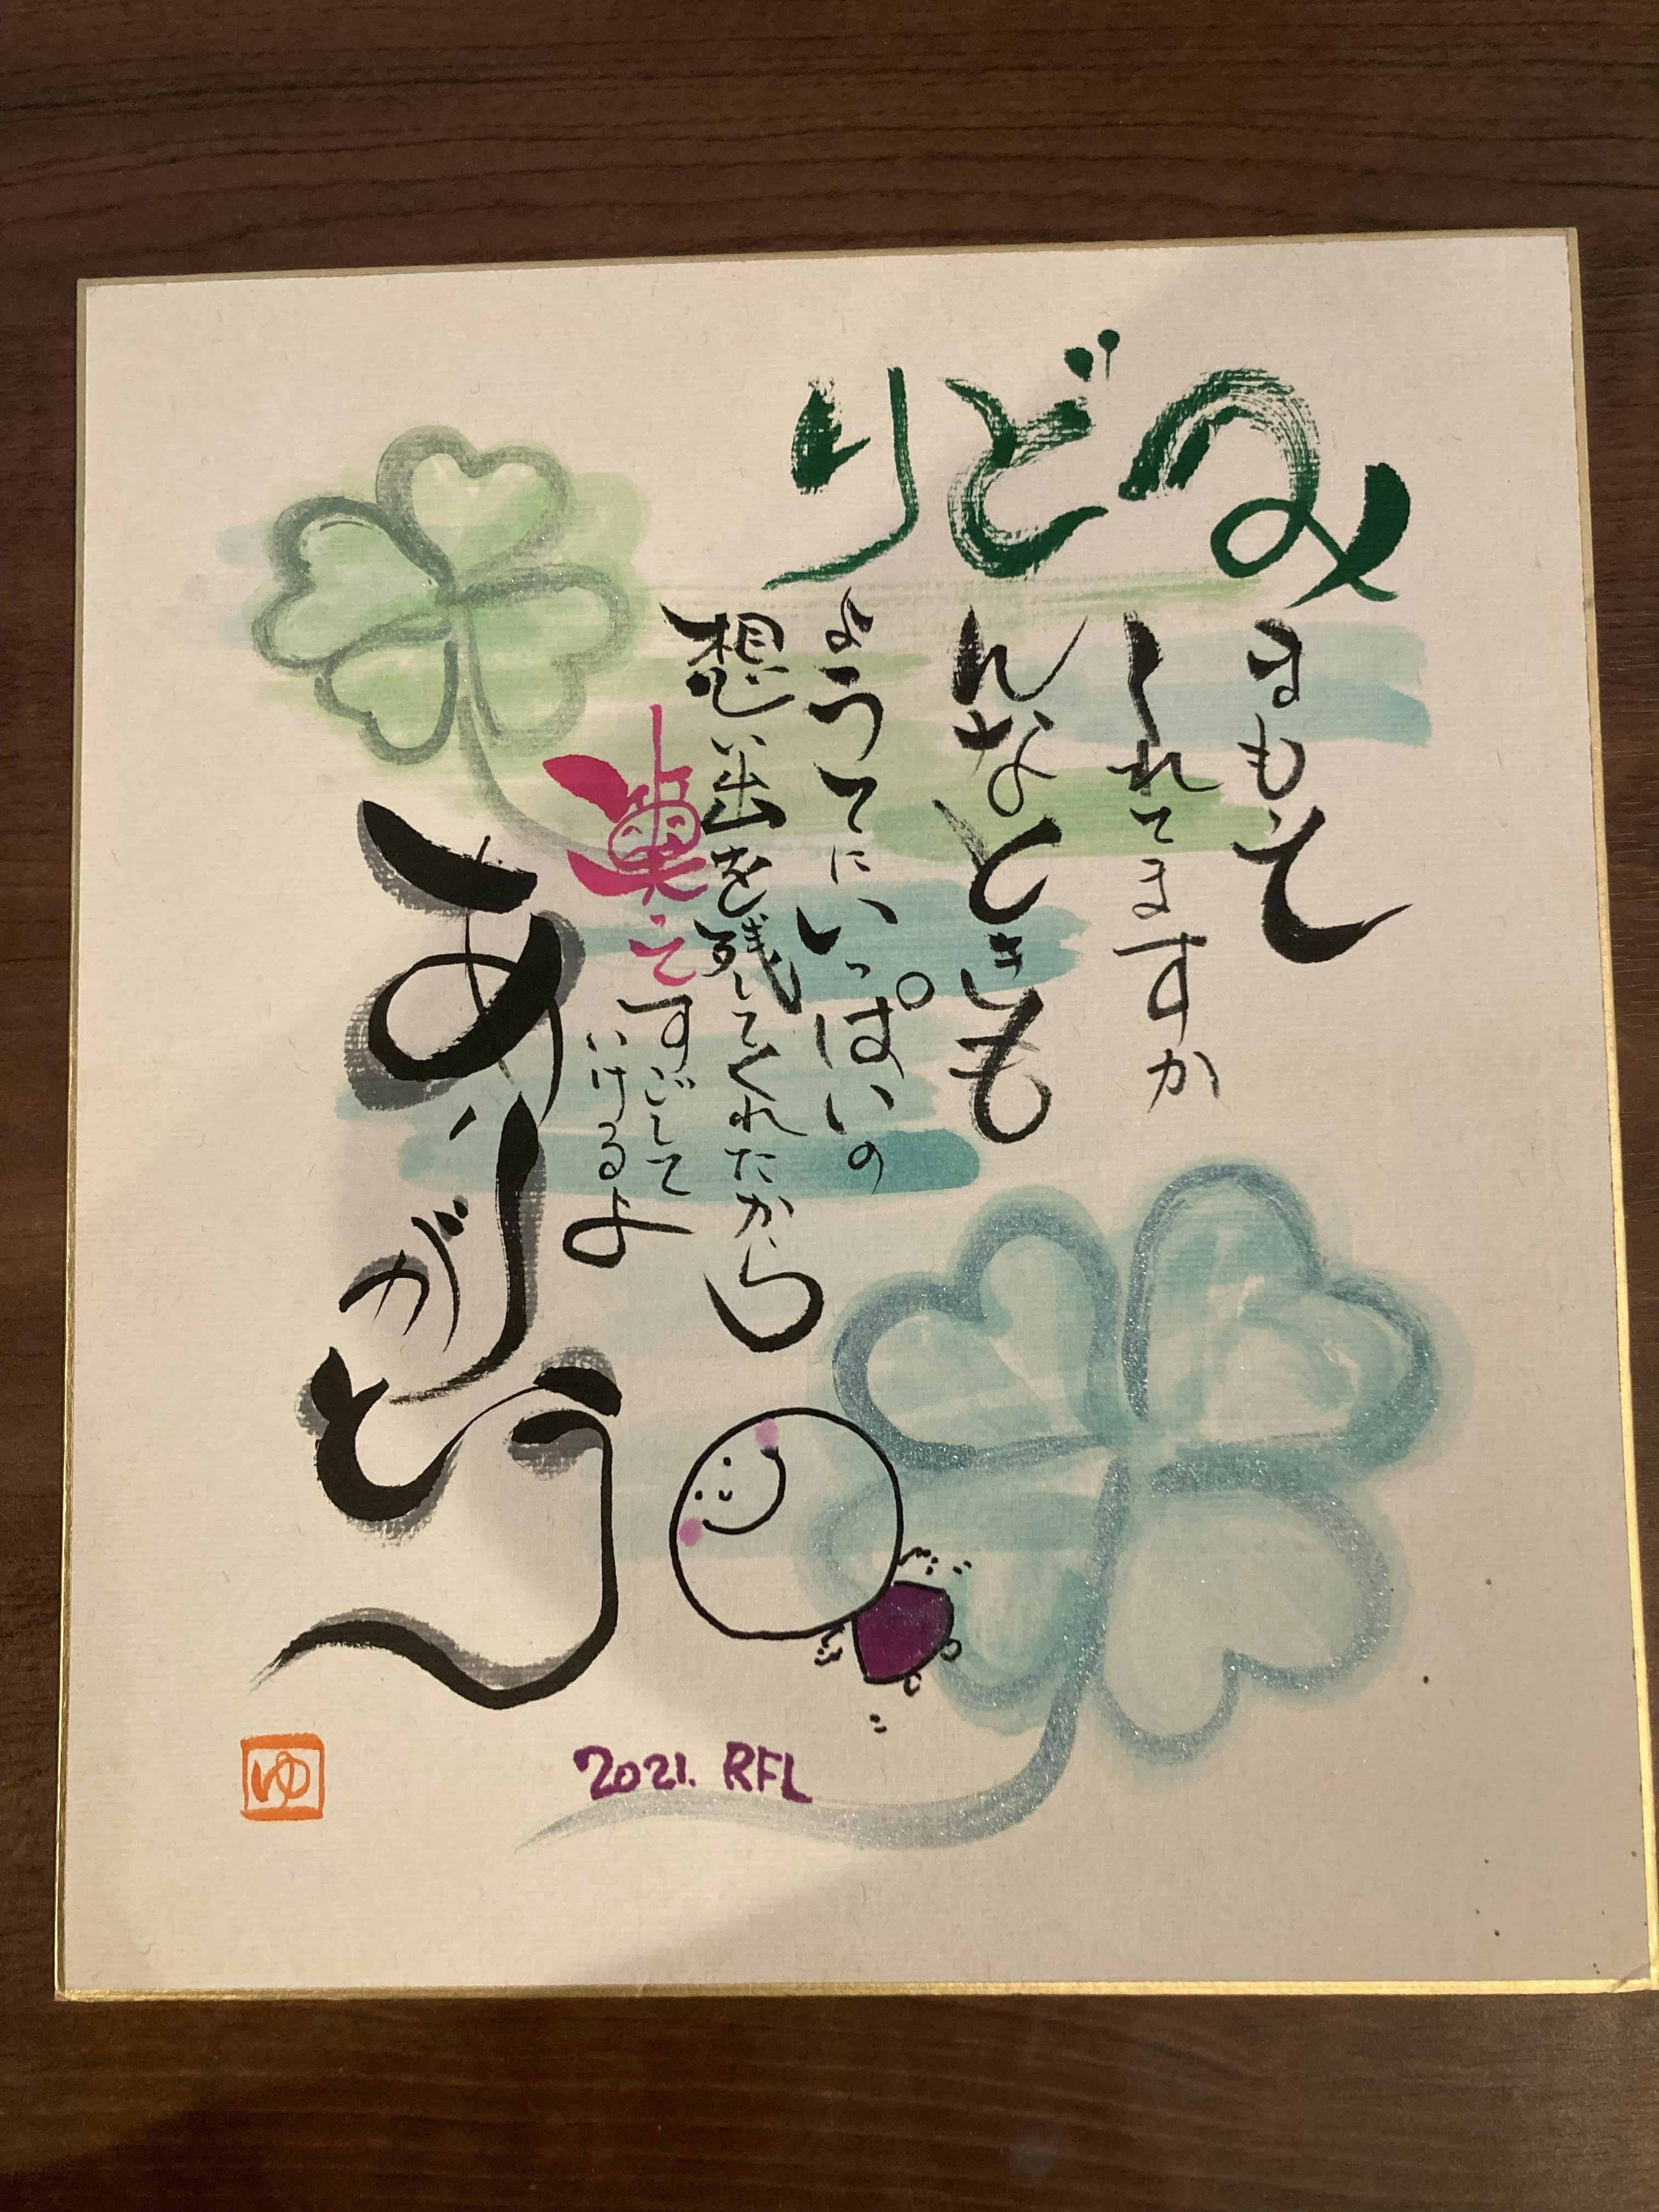 みまもって
くれてますか
どんなときも
りょうてにいっぱいの
想い出を残してくれたから
笑ってすごして
いけるよ
ありがとう
2021. RFL
ゆ